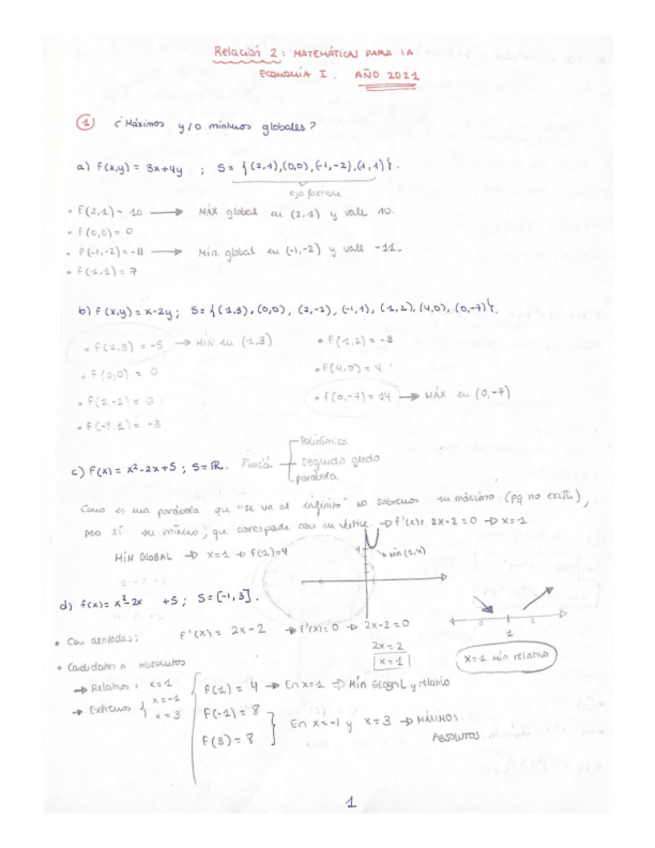 Relación 2: MATEMÁTICAS PARA LA
ECONOMÍA I. AÑO 2021
① ¿Máximos y/o mínimos globales?
a) f(x,y) = 3x+4y ; S = {(2,1),(0,0),(-1,-2),(1,1)}.
cjo factible
• f(2,1) = 10 → MÁX global en (2,1) y vale 10.
• f(0,0) = 0
• f(-1,-2) = -11 → Mín. global en (-1,-2) y vale -11.
• f(1,1) = 7
b) f(x,y) = x-2y ; S = {(1,3), (0,0), (2,-2), (-1,1), (1,2), (4,0), (0,-7)}.
• f(1,3) = -5 → MÍN en (1,3) • f(1,2) = -3
• f(0,0) = 0 • f(4,0) = 4
• f(2,-2) = 6 • f(0,-7) = 14 → MÁX en (0,-7)
• f(-1,1) = -3
Polinómica
c) f(x) = x²-2x+5 ; S = ℝ. Función segundo grado
parábola
Como es una parábola que "se va al infinito" no sabremos su máximo (pq no existe),
pero sí su mínimo, que corresponde con su vértice → f'(x) = 2x-2 = 0 → x=1
MÍN GLOBAL → x=1 → f(1)=4
4 mín (1,4)
d) f(x) = x²-2x +5 ; S = [-1,3].
• Con derivadas: f'(x) = 2x-2 → f'(x)=0 → 2x-2=0
2x=2
x=1
0 1 2
x=1 mín relativo
• Candidatos a absolutos
→ Relativos: x=1
→ Extremos { x=-1
x=3
f(1) = 4 → En x=1 → Mín Global y relativo
f(-1) = 8
f(3) = 8
En x=-1 y x=3 → MÁXIMOS
ABSOLUTOS
1